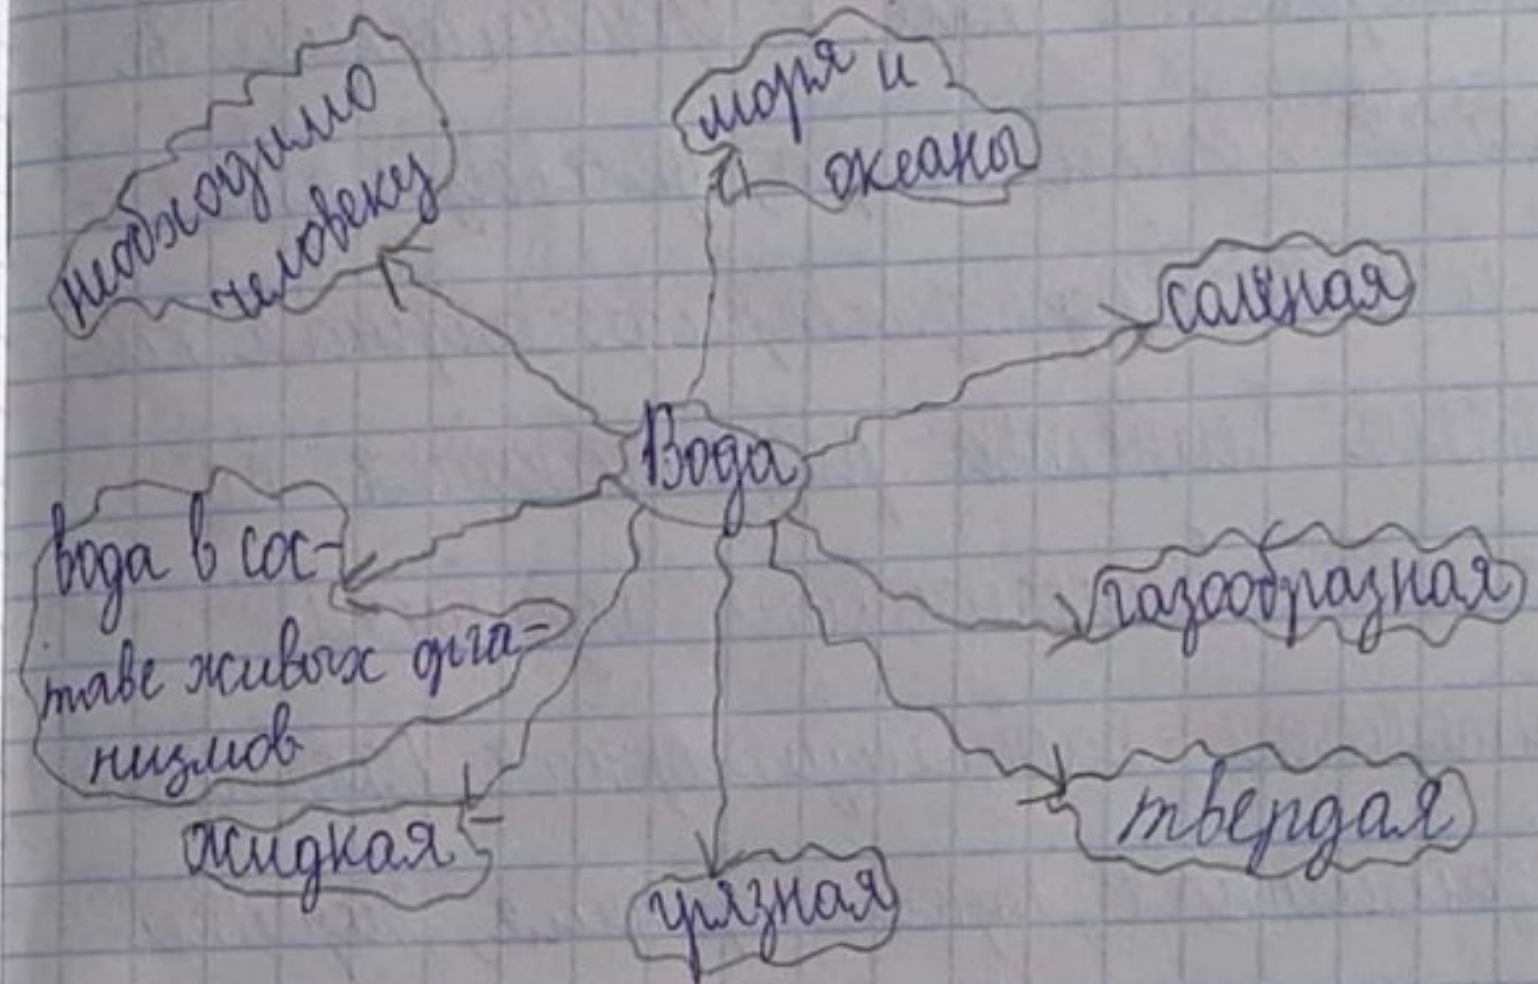 необходимо
человеку
моря и
океаны
солёная
Вода
вода в сос-
таве живых орга-
низмов
газообразная
жидкая
грязная
твердая